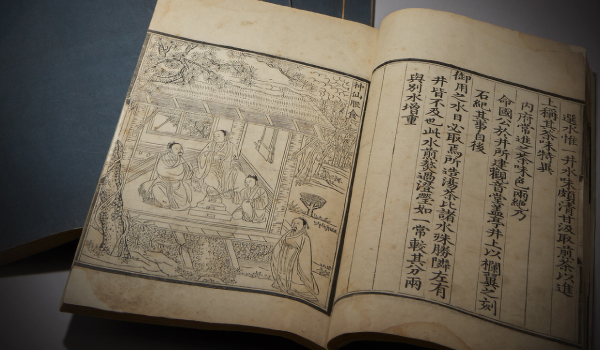 選水惟一井水味頗清甘汲取煎茶以進
上稱其茶味特異
內府常進之茶味色兩絕乃
命國公於井所建觀音堂蓋亭井上以欄翼之刻
石紀其事自後
御用之水日必取焉所造湯茶比諸水殊勝隣左有
井皆不及也此水煎熬過澄瑩如一常較其分兩
與別水增重
神仙服食